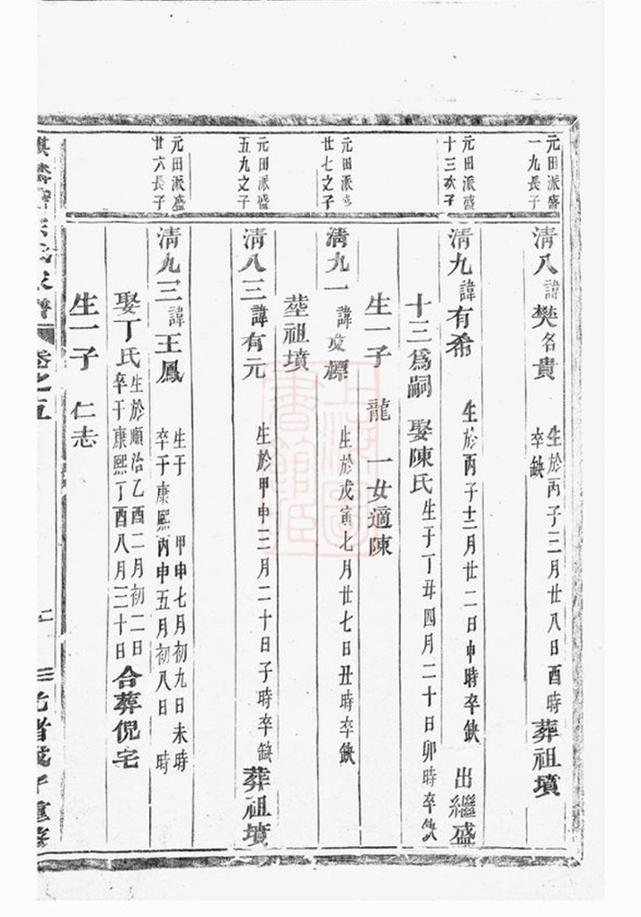 元田派盛
一九長子
清八 諱樊名貴 生於丙子三月廿八日酉時
卒缺 葬祖墳
元田派盛
十三次子
清九 諱有希 生於丙子十二月廿二日申時卒缺 出繼盛
十三爲嗣 娶陳氏 生于丁丑四月二十日卯時卒缺
生一子 龍 一女適陳
元田派盛
廿七之子
清九一 諱 標 生於戊寅七月廿七日丑時卒缺
塟祖墳
元田派盛
五九之子
清八三 諱有元 生於甲申三月二十日子時卒缺 葬祖墳
元田派盛
廿六長子
清九三 諱王鳳 生于 甲申七月初九日未時
卒于康熙丙申五月初八日 時
娶丁氏 生於順治乙酉二月初二日
卒于康熙丁酉八月三十日 合葬倪宅
生一子 仁志
氏 譜 卷之五